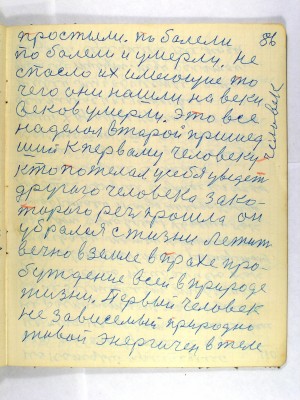 86
простыли. по болели
по болели и умерли. не
спасло их имеющие то
чего они нашли на веки
веков умерли. Это все
наделал второй пришед
ший к первому человеку человек
кто пожелал у себя увидет
другого человека за ко-
торого реч прошла он
убрался с жизни лежит
вечно в земле в прахе про-
буждение всей в природе
жизни. Первый человек
не зависемый природно
живой энергичен в теле